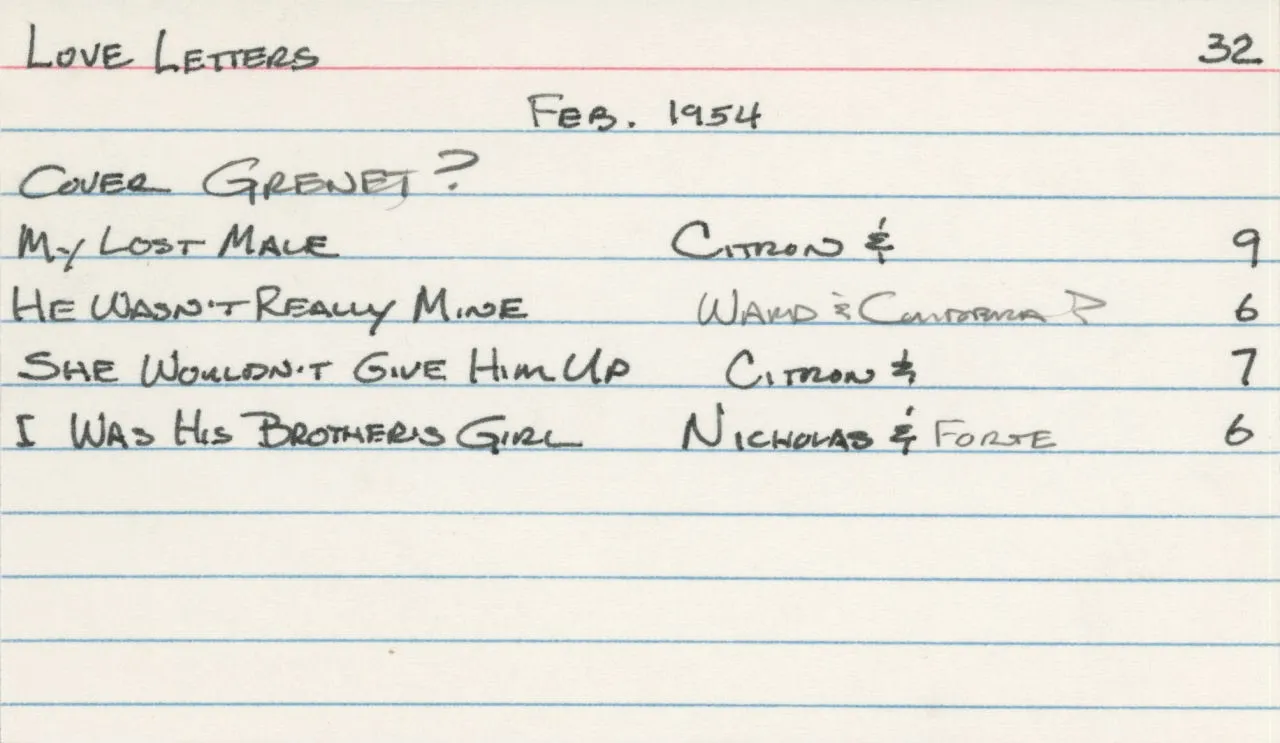 LOVE LETTERS 32
FEB. 1954
COVER GRENET?
MY LOST MALE CITRON & 9
HE WASN'T REALLY MINE WARD & ? 6
SHE WOULDN'T GIVE HIM UP CITRON & 7
I WAS HIS BROTHER'S GIRL NICHOLAS & FORTE 6